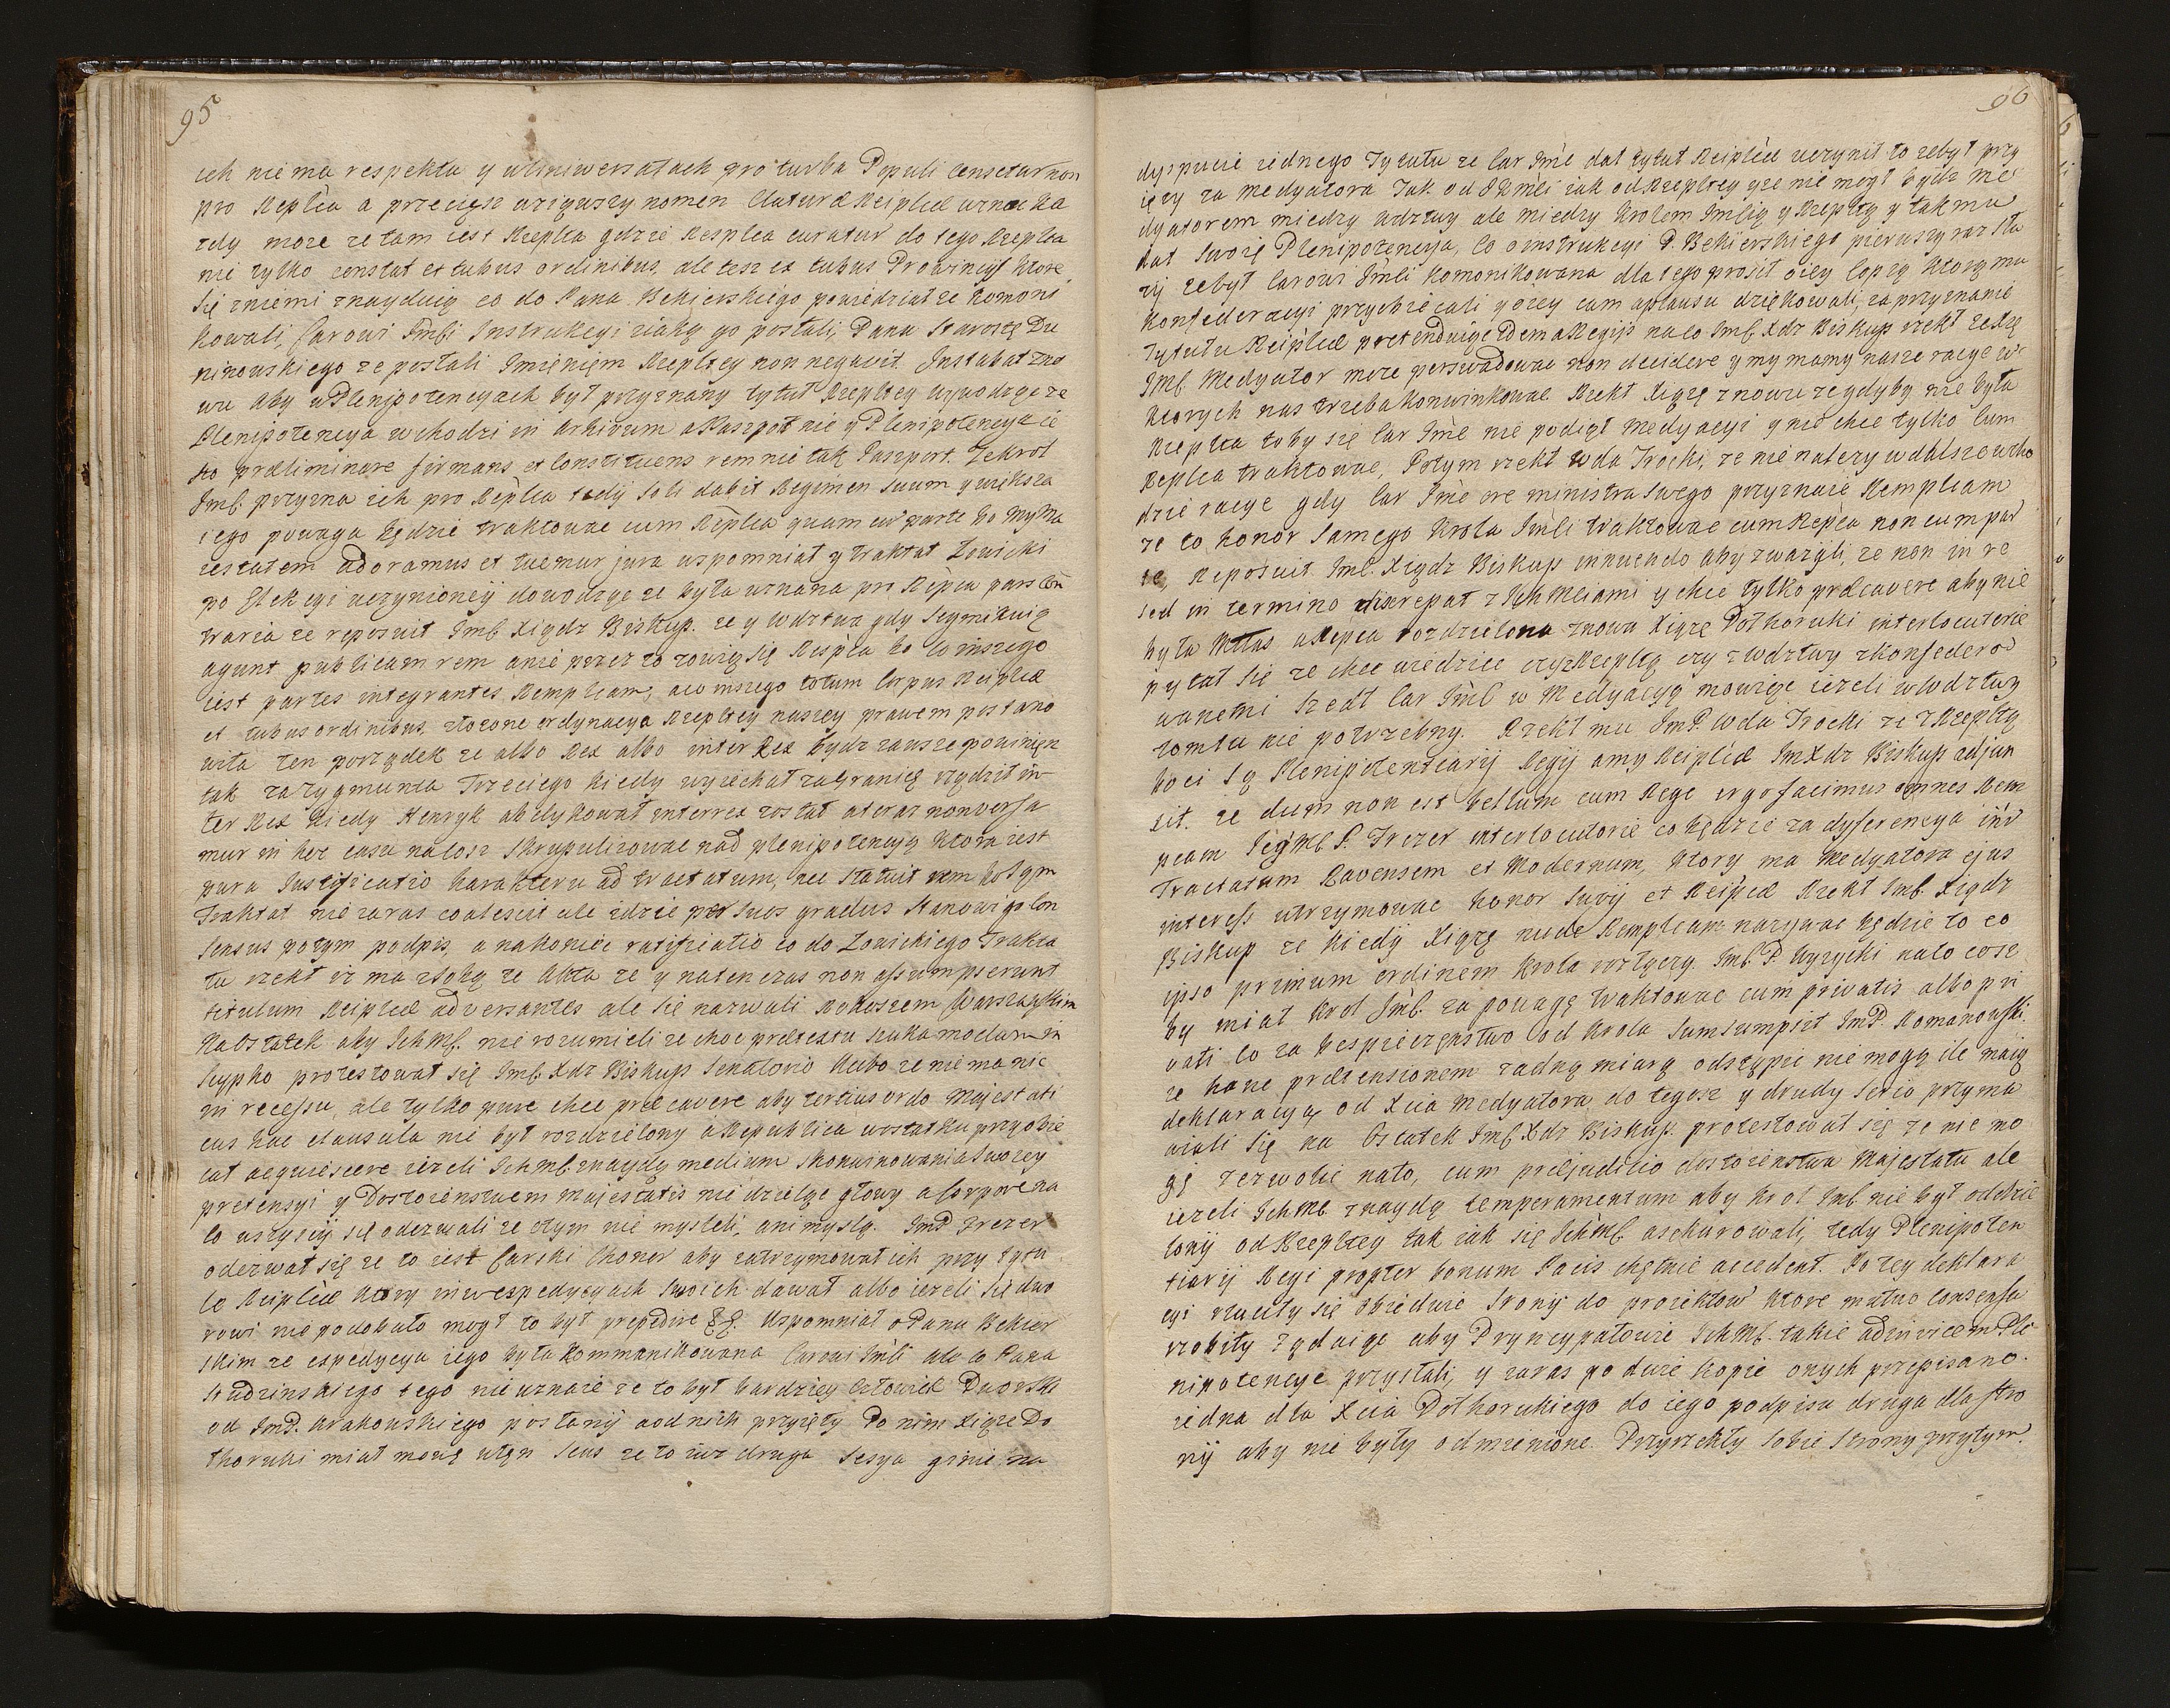 95
ich nie ma respektu y w Uniwersałach pro turba Populi censetur non
pro Replca a przeciesz wziąwszy nomen Naturæ Reiplcæ uznać ka
zdy może że tam iest Rzeplta gdzie Resplca curatur do tego Rzeplta
nie tylko constat et tribus ordinibus, ale tesz ex tribus Prowincyi ktore
się zniemi znayduią co do Pana Bekierskiego powiedział że komoni
kowali, Carowi Jmści Instrukcyi ziaką go posłali, Pana Starostę Du
ninowskiego ze posłali Jmieniem Rzepltey non negavit. Instabat zno
wu aby w Plenipotencyach był przyznany tytuł Rzepltey wywodząc ze
Plenipotencya wchodzi in Arhivum a Paszport nie y Plenipotencya ie
st præliminare firmans et Constituens rem nie tak Paszport. Ze Krol
Jmść przyzna ich pro Replca tedy sibi dabit Regimen suum y większa
iego powaga będzie traktować cum Replca quam cum parte bo my Ma
iestatem adoramus et tuemur jura wspomniał y traktat Łowicki
po Elekcyi uczynioney dowodząc ze była uznana pro Repca pars Con
traria ze reposuit Jmść Xiądz Biskup. ze y Wdztwa gdy Seymikuią
agunt publicam rem a nie przez to zowią się Resplca bo co inszego
iest partes integrantes Remplcam, a co inszego totum Corpus Reiplcæ
et tribus ordinibus, złożone ordynacya Rzepltey naszey prawem postano
wiła ten porządek ze albo Rex albo inter Rex bydz zawsze powinien
tak za Zygmunta Trzeciego kiedy wyiechał zagranicę rządził in
ter Rex kiedy Henryk abdykował interrex został a teraz non versa
mur in hoc casu na cosz skrupulizować nad plenipotencyą ktora iest
pura Justificatio karakteru ad tractatum, nec statuit rem bo sam
Traktat nie zaras coalescit ale idzie per suos gradus stanowią Con
sensus potym podpis, a nakoniec ratificatio co do Łowickiego Trakta
tu rzekł iż ma zsobą te Akta ze y natenczas non assumpserunt
titulum Reiplcæ adversantes ale się nazwali Rokoszem Warszawskim
Na Ostatek aby Ichmść nie rozumieli ze choc prætextu szuka modum in
Scypho protestował się Jmść Xdz Biskup Senatorio Verbo ze nie ma nic
in recessu, ale tylko pure chce præcavere aby tertius ordo Majestati
cus hac clausula nie był rozdzielony a Republica w ostatku przyobie
cał acquiescere iezeli Ichmść znaydą medium skonwinkowania swoiey
pretensyi y Dostoienstwem majestatis nie dzieląc głowy a corpore na
co wszyscy się odezwali ze otym nie mysleli, ani myslą. JmP. Frezer
odezwał się ze to iest Carski Chonor aby zatrzymował ich przy tytu
le Reiplcæ ktory im w expedycyach swoich dawał albo iezeli się dwo
rowi nie podobało mogł to był prepedire &c. Wspomniał o Panu Bekier
skim ze expedycya iego była kommunikowana Carowi Jmści ale co Pana
Studzinskiego tego nie uznaie ze to był bardziey człowiek Dworski
od JmP. Krakowskiego posłany a od nich przyięty Po nim Xiąze Do
lhoruki miał mowę w ten sens ze to iusz druga Sesya ginie na
96
dyspucie iednego Tytułu ze Car Jmść dał tytuł Reiplcæ uczynił to zeby przy
ięty za Medyatora Jak od JKmści iak od Rzepltey y ze nie mogł bydz me
dyatorem miedzy Wdztwy ale miedzy Krolem Jmścią y Rzepltą y tak ma
dał swoię Plenipotencya, Co o instrukcyi P. Bekierskiego pierwszy raz sły
szy zeby Carowi Jmści komonikowana dla tego prosił o iey Copią ktorą mu
konfederacyi przyobiecali y oiey cum aplausu dziękowali, za przyznanie
Tytułu Reiplcæ pretenduiąc Idem a Regijs na co Jmść Xdz Biskup rzekł ze Xże
Jmść Medyator może perswadować non decidere y my mamy nasze racye w
ktorych nas trzeba konwinkować Rzekł Xiąze znowu ze gdyby nie była
Rzeplta toby się Car Jmść nie podiął Medyacyi y nie chce tylko Cum
Replca traktować, Potym rzekł Wda Trocki, ze nie nalezy w dalsze wcho
dzić racye gdy Car Jmść ore ministra swego przyznaie Remplcam
ze to honor samego Krola Jmści traktować cum Repca non cum par
te, Reposuit Jmść Xiądz Biskup innuendo aby zwazyli, ze non in re
sed in termino discrepat z Ichmściami y chce tylko præcavere aby nie
była Mttas a Repca rozdzielona znowu Xiąze Dolhoruki interlocutorie
pytał się ze chce wiedziec czy z Rzepltą czy z Wdztwy zkonfedero
wanemi szedł Car Jmść w Medyacyą mowiąc iezeli w Wdztwa
tom tu nie potrzebny. Rzekł mu JmP. Wda Trocki ze z Rzepltą
bo ci są Plenipotentiarij Regij a my Reiplcæ Jm Xdz Biskup adjun
xit. ze dum non est bellum cum Rege ergo facimus omnes Rem
pcam Jegmść P. Frezer interlocutorie co będzie za dyferencya intr
Tractatum Ravensem et Modernum, ktory ma Medyatora ejus
interess utrzymowac honor suvij et Reipcæ Rzekł Jmść Xiądz
Biskup ze kiedy Xiąże nude Remplcam nazywac będzie to eo
ipso primum ordinem Krola rozłączy. Jmść P. Wyzycki na to cosz
by miał Krol Jmść za powagę traktować cum privatis albo pri
vati co za bespieczenstwo od Krola Sumsumpsit JmP. Komanowski
ze hanc prætensionem zadną miarą odstąpic nie mogą ile maią
deklaracyą od Xcia Medyatora do tegosz y drudy serio przyma
wiali się na Ostatek Jmść Xdz Biskup protestował się ze nie mo
ze zezwolic nato, cum præjudicio dostoienstwa Majestatu ale
iezeli Ichmść znaydą temperamentum aby Krol Jmść nie był oddzie
lony od Rzepltey tak iak się Ichmść asekurowali, tedy Plenipoten
tiarij Regi propter bonum Pacis chętnie accedent. Po tey deklara
cyi rzuciły się obiedwie strony do proiektow ktore mutuo consensu
zrobiły ządaiąc aby Pryncypałowie Ichmść takie adinvicem Ple
nipotencye przysłali, y zaras po dwie kopie onych przepisano.
iedna dla Xcia Dolhorukiego do iego podpisu druga dla stro
ny aby nie były odmienione. Przyrzekły sobie strony przytym